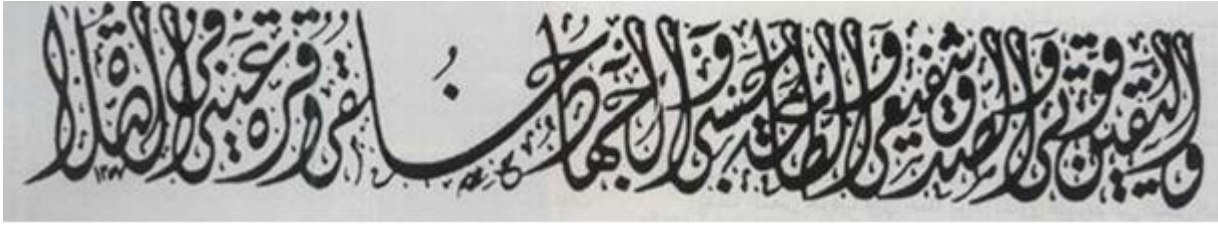 واليقين قوتي والصدق شفيعي والطاعة حسبي والجهاد خلقي وقرة عيني في الصلاة